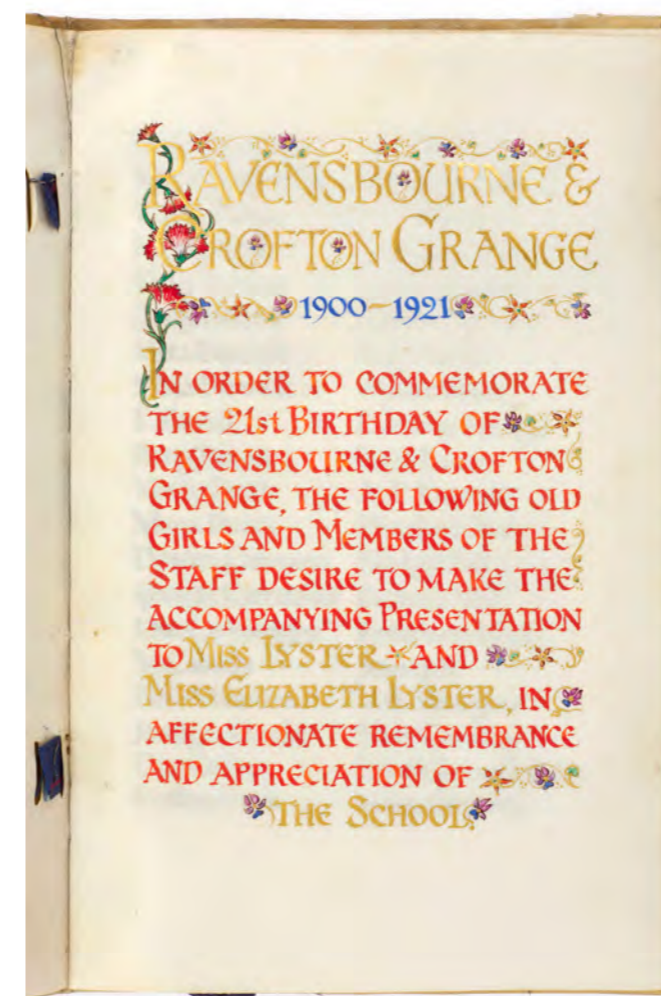 RAVENSBOURNE &
CROFTON GRANGE
1900–1921
IN ORDER TO COMMEMORATE
THE 21st BIRTHDAY OF
RAVENSBOURNE & CROFTON
GRANGE, THE FOLLOWING OLD
GIRLS AND MEMBERS OF THE
STAFF DESIRE TO MAKE THE
ACCOMPANYING PRESENTATION
TO MISS LYSTER AND
MISS ELIZABETH LYSTER, IN
AFFECTIONATE REMEMBRANCE
AND APPRECIATION OF
THE SCHOOL.